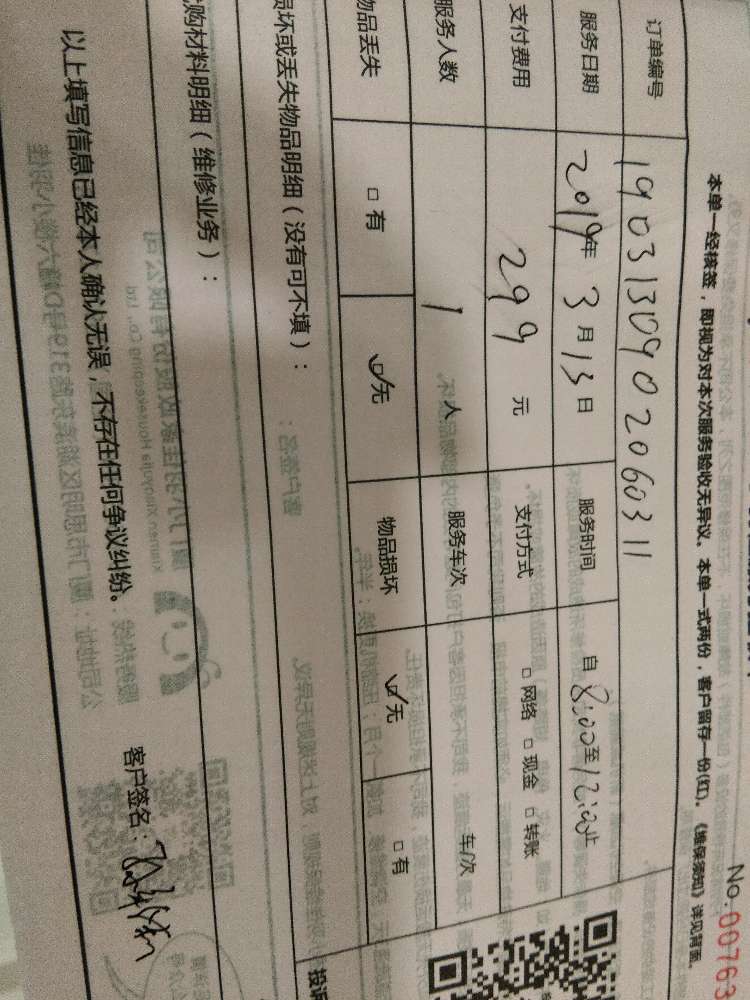 No.00763
本单一经核签，即视为对本次服务验收无异议。本单一式两份，客户留存一份(红)。《维保须知》详见背面。
订单编号 1903130902060311
服务日期 2019年 3月13日 服务时间 自8:00至12:00止
支付费用 299 元 支付方式 □网络 □现金 □转账
服务人数 1 人 服务车次 车/次
物品丢失 □有 ☑无 物品损坏 ☑无 □有
损坏或丢失物品明细（没有可不填）：
购材料明细（维修业务）：
以上填写信息已经本人确认无误，不存在任何争议纠纷。
客户签名：
投诉